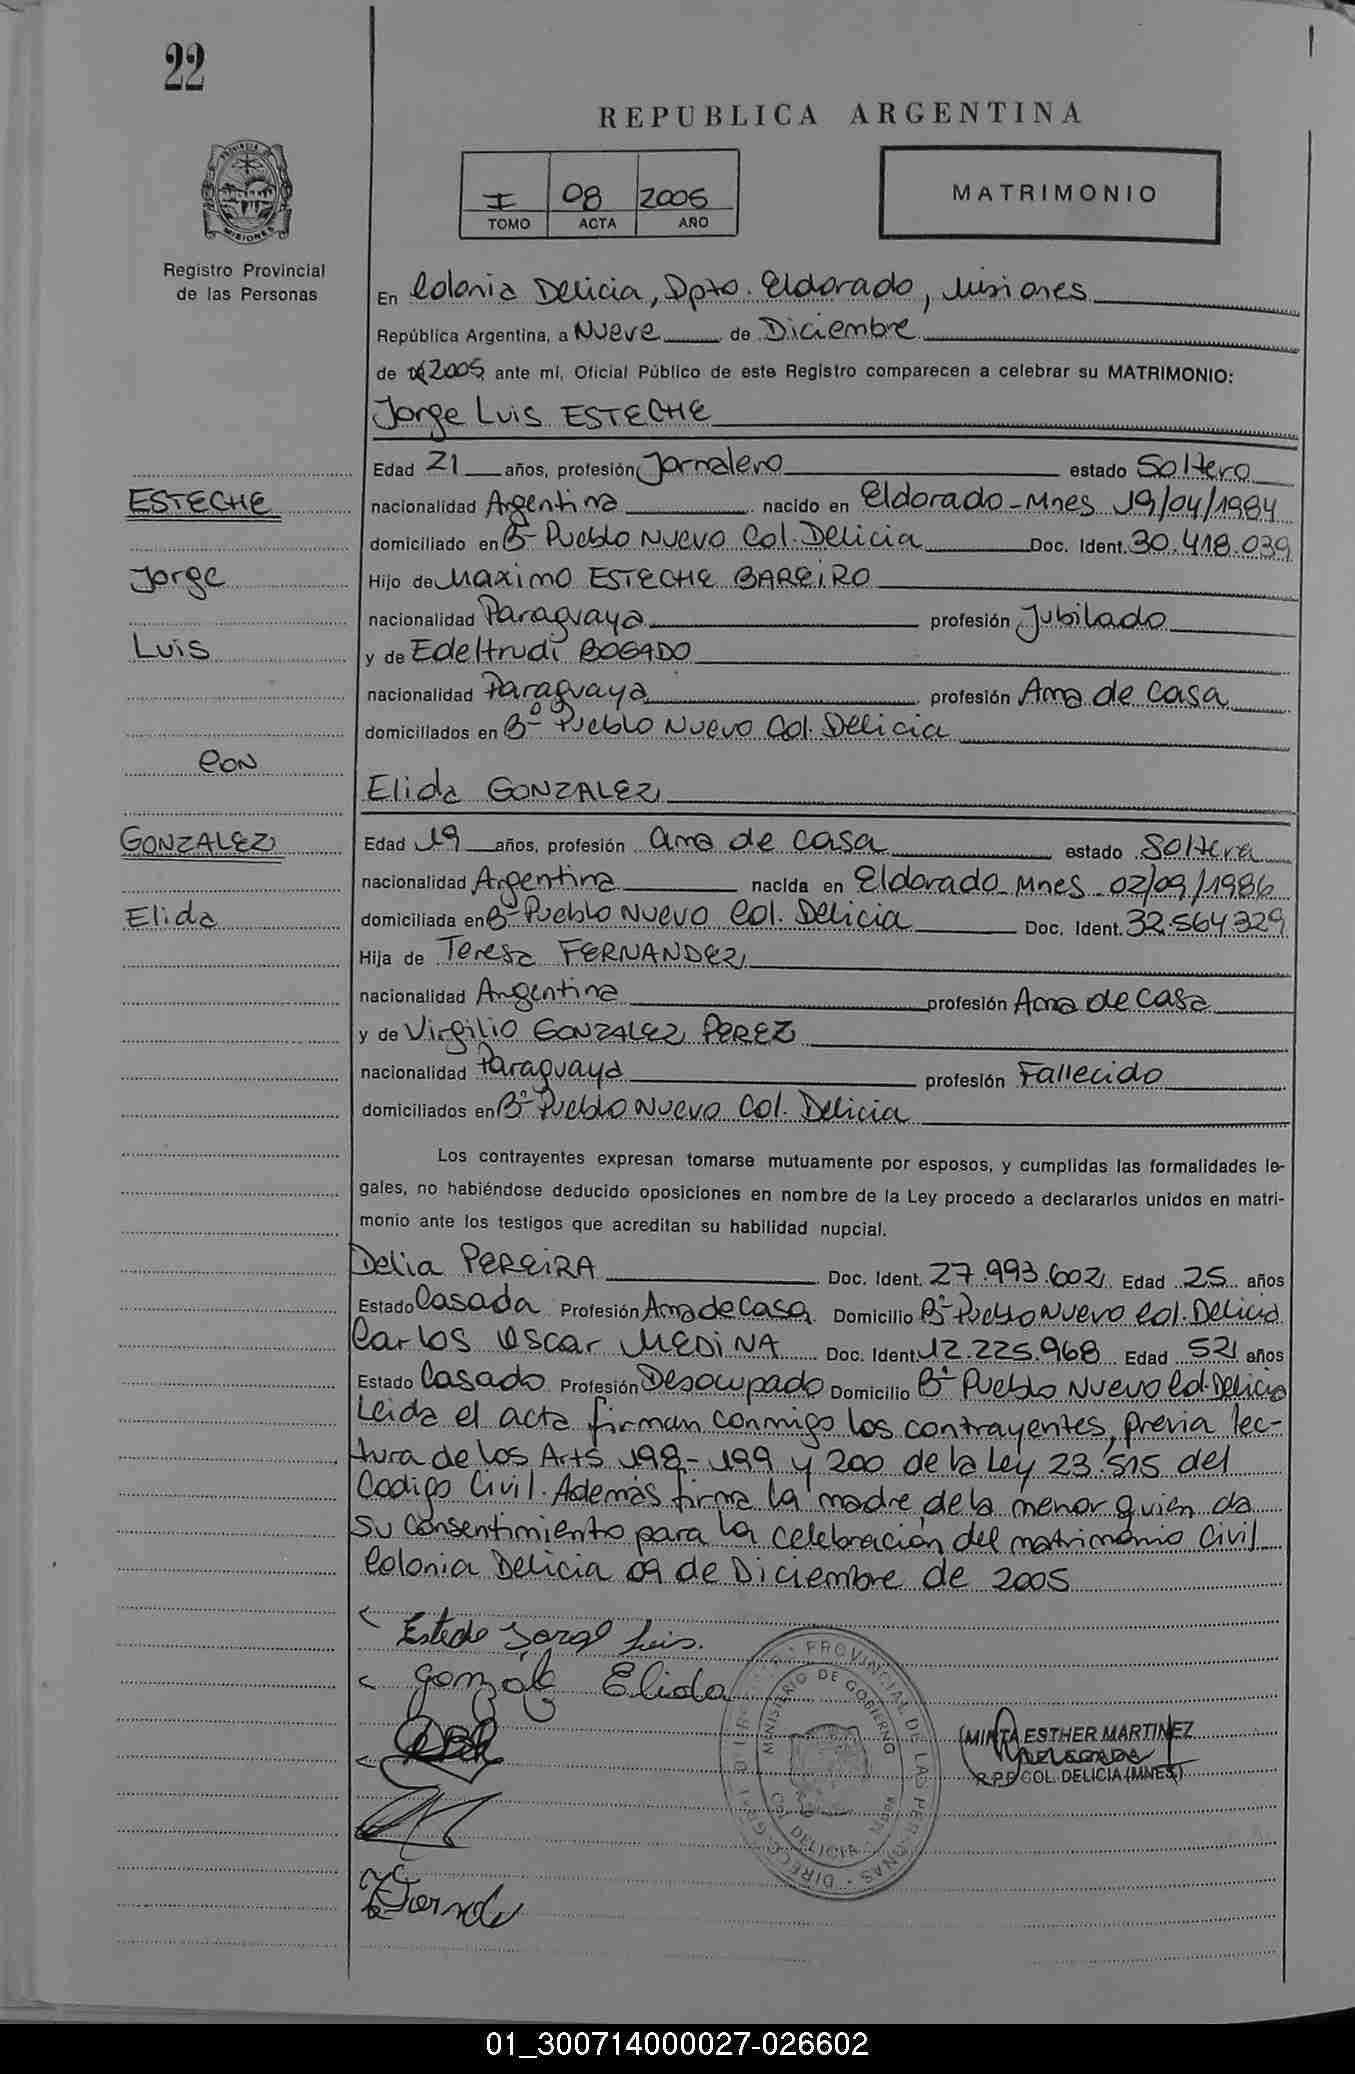 22
REPUBLICA ARGENTINA
I 08 2005
TOMO ACTA AÑO
MATRIMONIO
PROVINCIA DE
MISIONES
Registro Provincial
de las Personas
En Colonia Delicia, Dpto. Eldorado, Misiones
República Argentina, a Nueve de Diciembre
de 2005 ante mí, Oficial Público de este Registro comparecen a celebrar su MATRIMONIO:
Jorge Luis ESTECHE
Edad 21 años, profesión Jornalero estado Soltero
ESTECHE
nacionalidad Argentina nacido en Eldorado-Mnes 19/04/1984
domiciliado en B- Pueblo Nuevo Col. Delicia Doc. Ident. 30.418.039
Jorge
Hijo de Maximo ESTECHE BAREIRO
nacionalidad Paraguaya profesión Jubilado
Luis
y de Edeltrudi BOGADO
nacionalidad Paraguaya profesión Ama de casa
domiciliados en Bº Pueblo Nuevo Col. Delicia
CON
Elida GONZALEZ
GONZALEZ
Edad 19 años, profesión ama de casa estado Soltera
nacionalidad Argentina nacida en Eldorado Mnes 02/09/1986
Elida
domiciliada en B- Pueblo Nuevo Col. Delicia Doc. Ident. 32.564.329
Hija de Teresa FERNANDEZ
nacionalidad Argentina profesión Ama de casa
y de Virgilio GONZALEZ PEREZ
nacionalidad Paraguaya profesión Fallecido
domiciliados en Bº Pueblo Nuevo Col. Delicia
Los contrayentes expresan tomarse mutuamente por esposos, y cumplidas las formalidades le-
gales, no habiéndose deducido oposiciones en nombre de la Ley procedo a declararlos unidos en matri-
monio ante los testigos que acreditan su habilidad nupcial.
Delia PEREIRA Doc. Ident. 27.993.602 Edad 25 años
Estado Casada Profesión Ama de Casa Domicilio Bº Pueblo Nuevo Col. Delicia
Carlos Oscar MEDINA Doc. Ident. 12.225.968 Edad 52 años
Estado Casado Profesión Desocupado Domicilio Bº Pueblo Nuevo Col. Delicia
Leida el acta firman conmigo los contrayentes, previa lec-
tura de los Arts 198-199 y 200 de la Ley 23.515 del
Codigo Civil. Además firma la madre de la menor quien da
su consentimiento para la celebración del matrimonio Civil
Colonia Delicia 09 de Diciembre de 2005
Esteche Jorge Luis.
Gonzalez Elida
PROVINCIAL DE LAS PERSONAS
MINISTERIO DE GOBIERNO
COL DELICIA
MIRTA ESTHER MARTINEZ
R.P.P. COL. DELICIA (MNES)
01_300714000027-026602